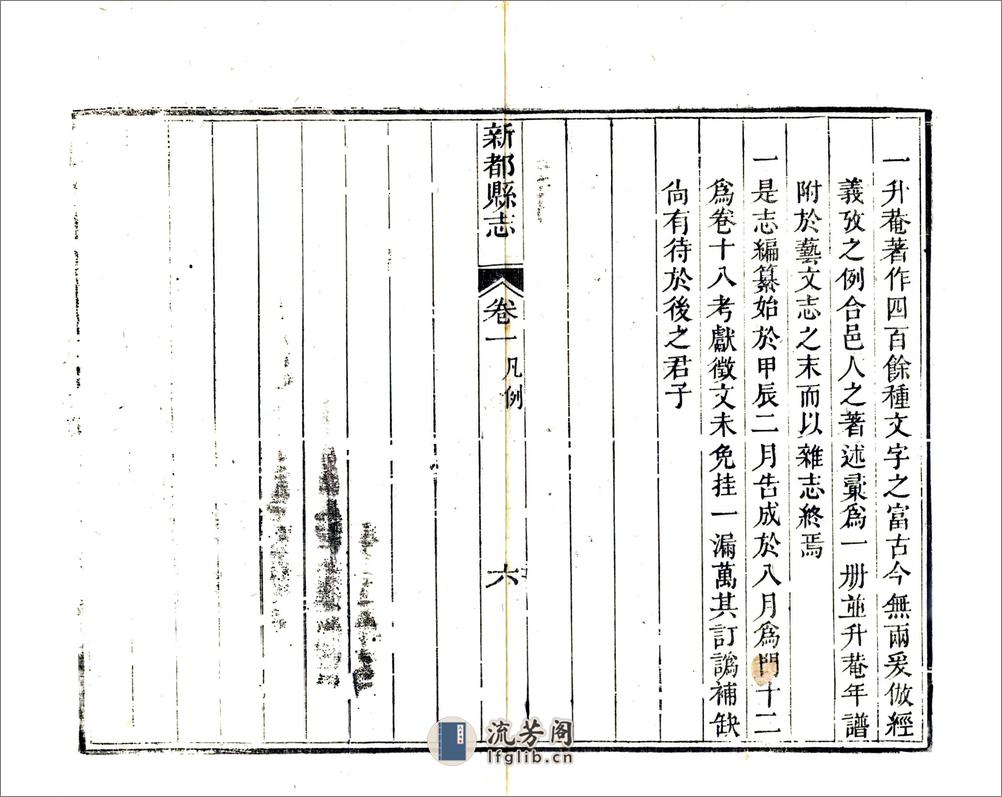 一升菴著作四百餘種文字之富古今無兩爰倣經
義攷之例合邑人之著述彙爲一册並升菴年譜
附於藝文志之末而以雜志終焉
一是志編纂始於甲辰二月告成於八月爲門十二
爲卷十八考獻徵文未免挂一漏萬其訂譌補缺
尙有待於後之君子
新都縣志
卷一凡例
六
流芳阁
lfglib.cn